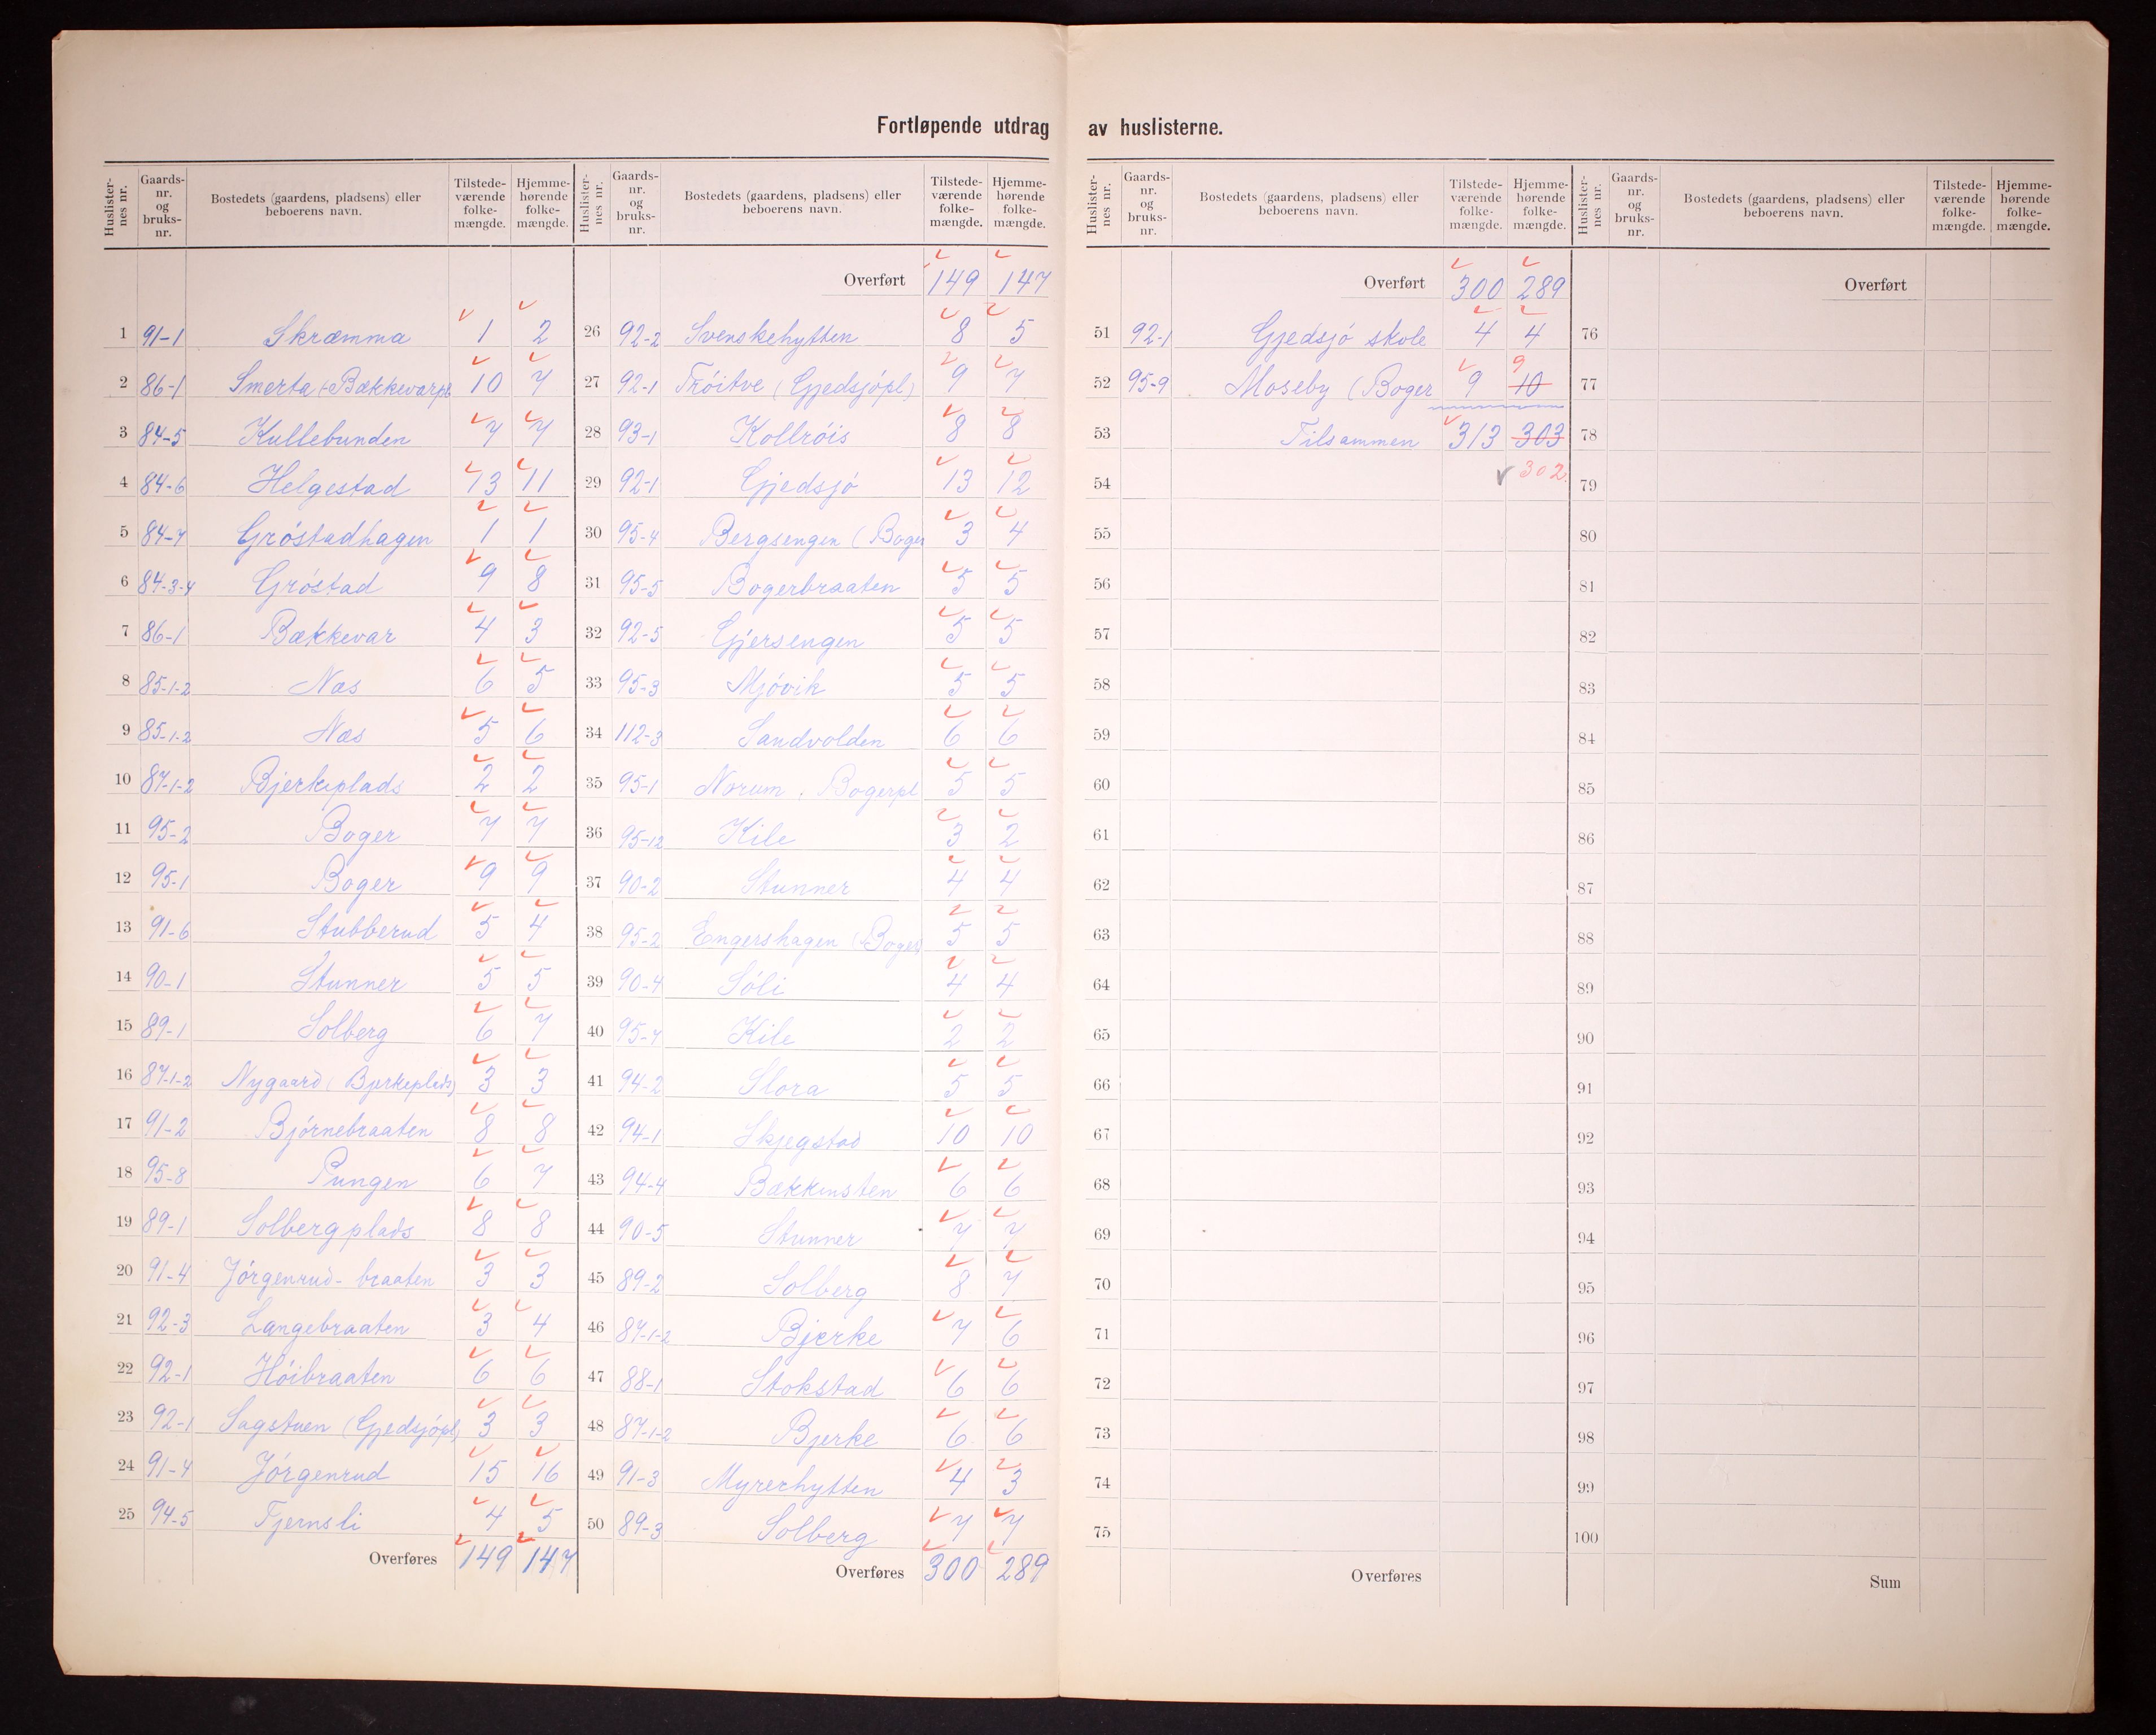 Fortløpende utdrag av huslisterne.
Huslister-nes nr. | Gaards-nr. og bruks-nr. | Bostedets (gaardens, pladsens) eller beboerens navn. | Tilstede-værende folke-mængde. | Hjemme-hørende folke-mængde.
1 91-1 Skræmma 1 2
2 86-1 Smerta (Bækkevarpl 10 7
3 84-5 Kullebunden 7 7
4 84-6 Helgestad 13 11
5 84-7 Gróstadhagen 1 1
6 84-3-4 Gróstad 9 8
7 86-1 Bækkevar 4 3
8 85-1-2 Næs 6 5
9 85-1-2 Næs 5 6
10 87-1-2 Bjerkeplads 2 2
11 95-2 Boger 7 7
12 95-1 Boger 9 9
13 91-6 Stubberud 5 4
14 90-1 Stunner 5 5
15 89-1 Solberg 6 7
16 87-1-2 Nygaard (Bjerkeplads) 3 3
17 91-2 Bjórnebraaten 8 8
18 95-8 Pungen 6 7
19 89-1 Solbergplads 8 8
20 91-4 Jórgenrud-braaten 3 3
21 92-3 Langebraaten 3 4
22 92-1 Hóibraaten 6 6
23 92-1 Sagstuen (Gjedsjópl) 3 3
24 91-4 Jórgenrud 15 16
25 94-5 Tjernsli 4 5
Overføres 149 147
Huslister-nes nr. | Gaards-nr. og bruks-nr. | Bostedets (gaardens, pladsens) eller beboerens navn. | Tilstede-værende folke-mængde. | Hjemme-hørende folke-mængde.
Overført 149 147
26 92-2 Svenskehytten 8 5
27 92-1 Tróitve (Gjedsjópl) 9 7
28 93-1 Kollróis 8 8
29 92-1 Gjedsjó 13 12
30 95-4 Bergsengen (Boger 3 4
31 95-5 Bogerbraaten 5 5
32 92-5 Gjersengen 5 5
33 95-3 Mjóvik 5 5
34 112-3 Sandvolden 6 6
35 95-1 Norum, Bogerpl 5 5
36 95-12 Kile 3 2
37 90-2 Stunner 4 4
38 95-2 Engershagen (Boger) 5 5
39 90-4 Sóli 4 4
40 95-7 Kile 2 2
41 94-2 Slora 5 5
42 94-1 Skjegstad 10 10
43 94-4 Bækkensten 6 6
44 90-5 Stunner 7 7
45 89-2 Solberg 8 7
46 87-1-2 Bjerke 7 6
47 88-1 Stokstad 6 6
48 87-1-2 Bjerke 6 6
49 91-3 Myrerhytten 4 3
50 89-3 Solberg 7 7
Overføres 300 289
Huslister-nes nr. | Gaards-nr. og bruks-nr. | Bostedets (gaardens, pladsens) eller beboerens navn. | Tilstede-værende folke-mængde. | Hjemme-hørende folke-mængde.
Overført 300 289
51 92-1 Gjedsjó skole 4 4
52 95-9 Moseby (Boger 9 10 9
53 Tilsammen 313 303
54 302.
55
56
57
58
59
60
61
62
63
64
65
66
67
68
69
70
71
72
73
74
75
Overføres
Huslister-nes nr. | Gaards-nr. og bruks-nr. | Bostedets (gaardens, pladsens) eller beboerens navn. | Tilstede-værende folke-mængde. | Hjemme-hørende folke-mængde.
Overført
76
77
78
79
80
81
82
83
84
85
86
87
88
89
90
91
92
93
94
95
96
97
98
99
100
Sum